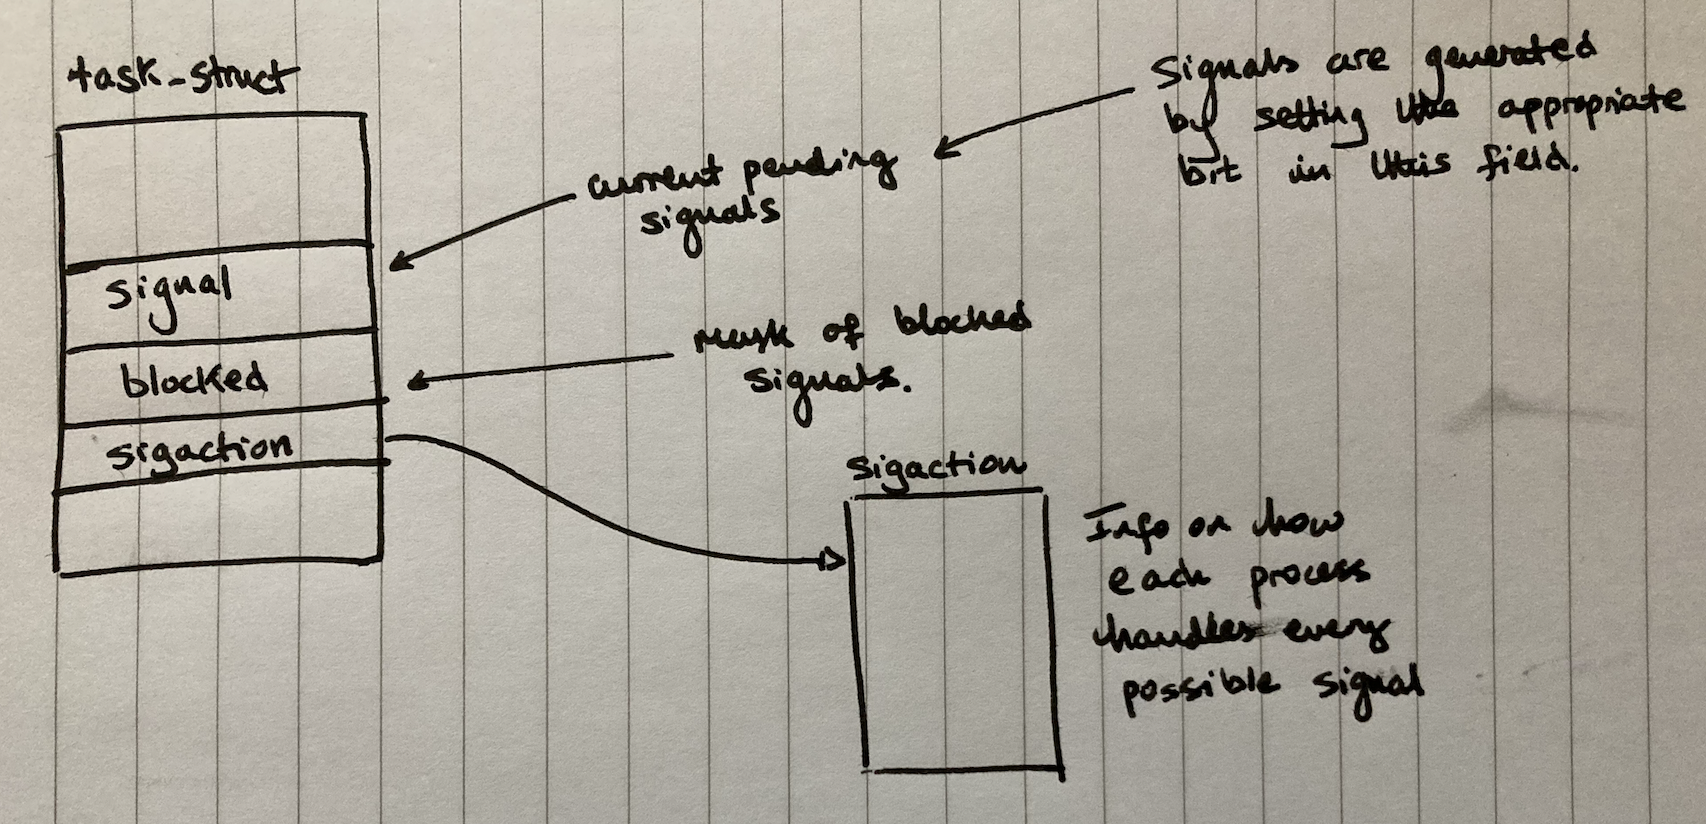 task_struct
signal
blocked
sigaction
current pending
signals
Signals are generated
by setting the appropriate
bit in this field.
Mask of blocked
signals.
sigaction
Info on how
each process
handles every
possible signal